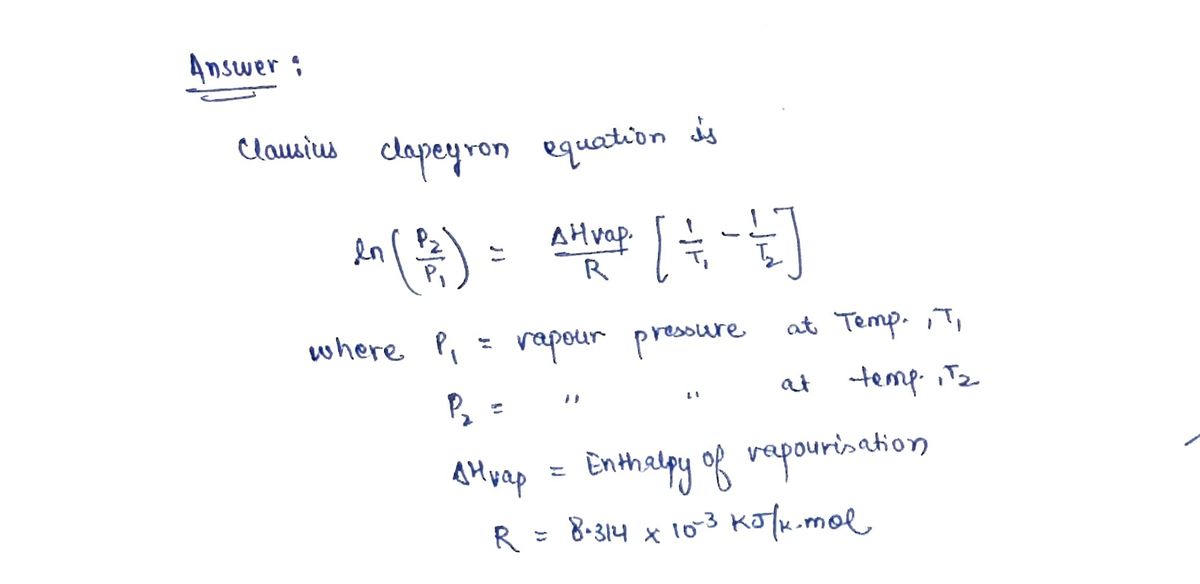 Answer :
Clausius clapeyron equation is
ln(P₂/P₁) = ΔHvap./R [1/T₁ - 1/T₂]
where P₁ = vapour pressure at Temp. , T₁
P₂ = " " at temp. , T₂
ΔHvap = Enthalpy of vapourisation
R = 8.314 x 10⁻³ KJ/K.mol